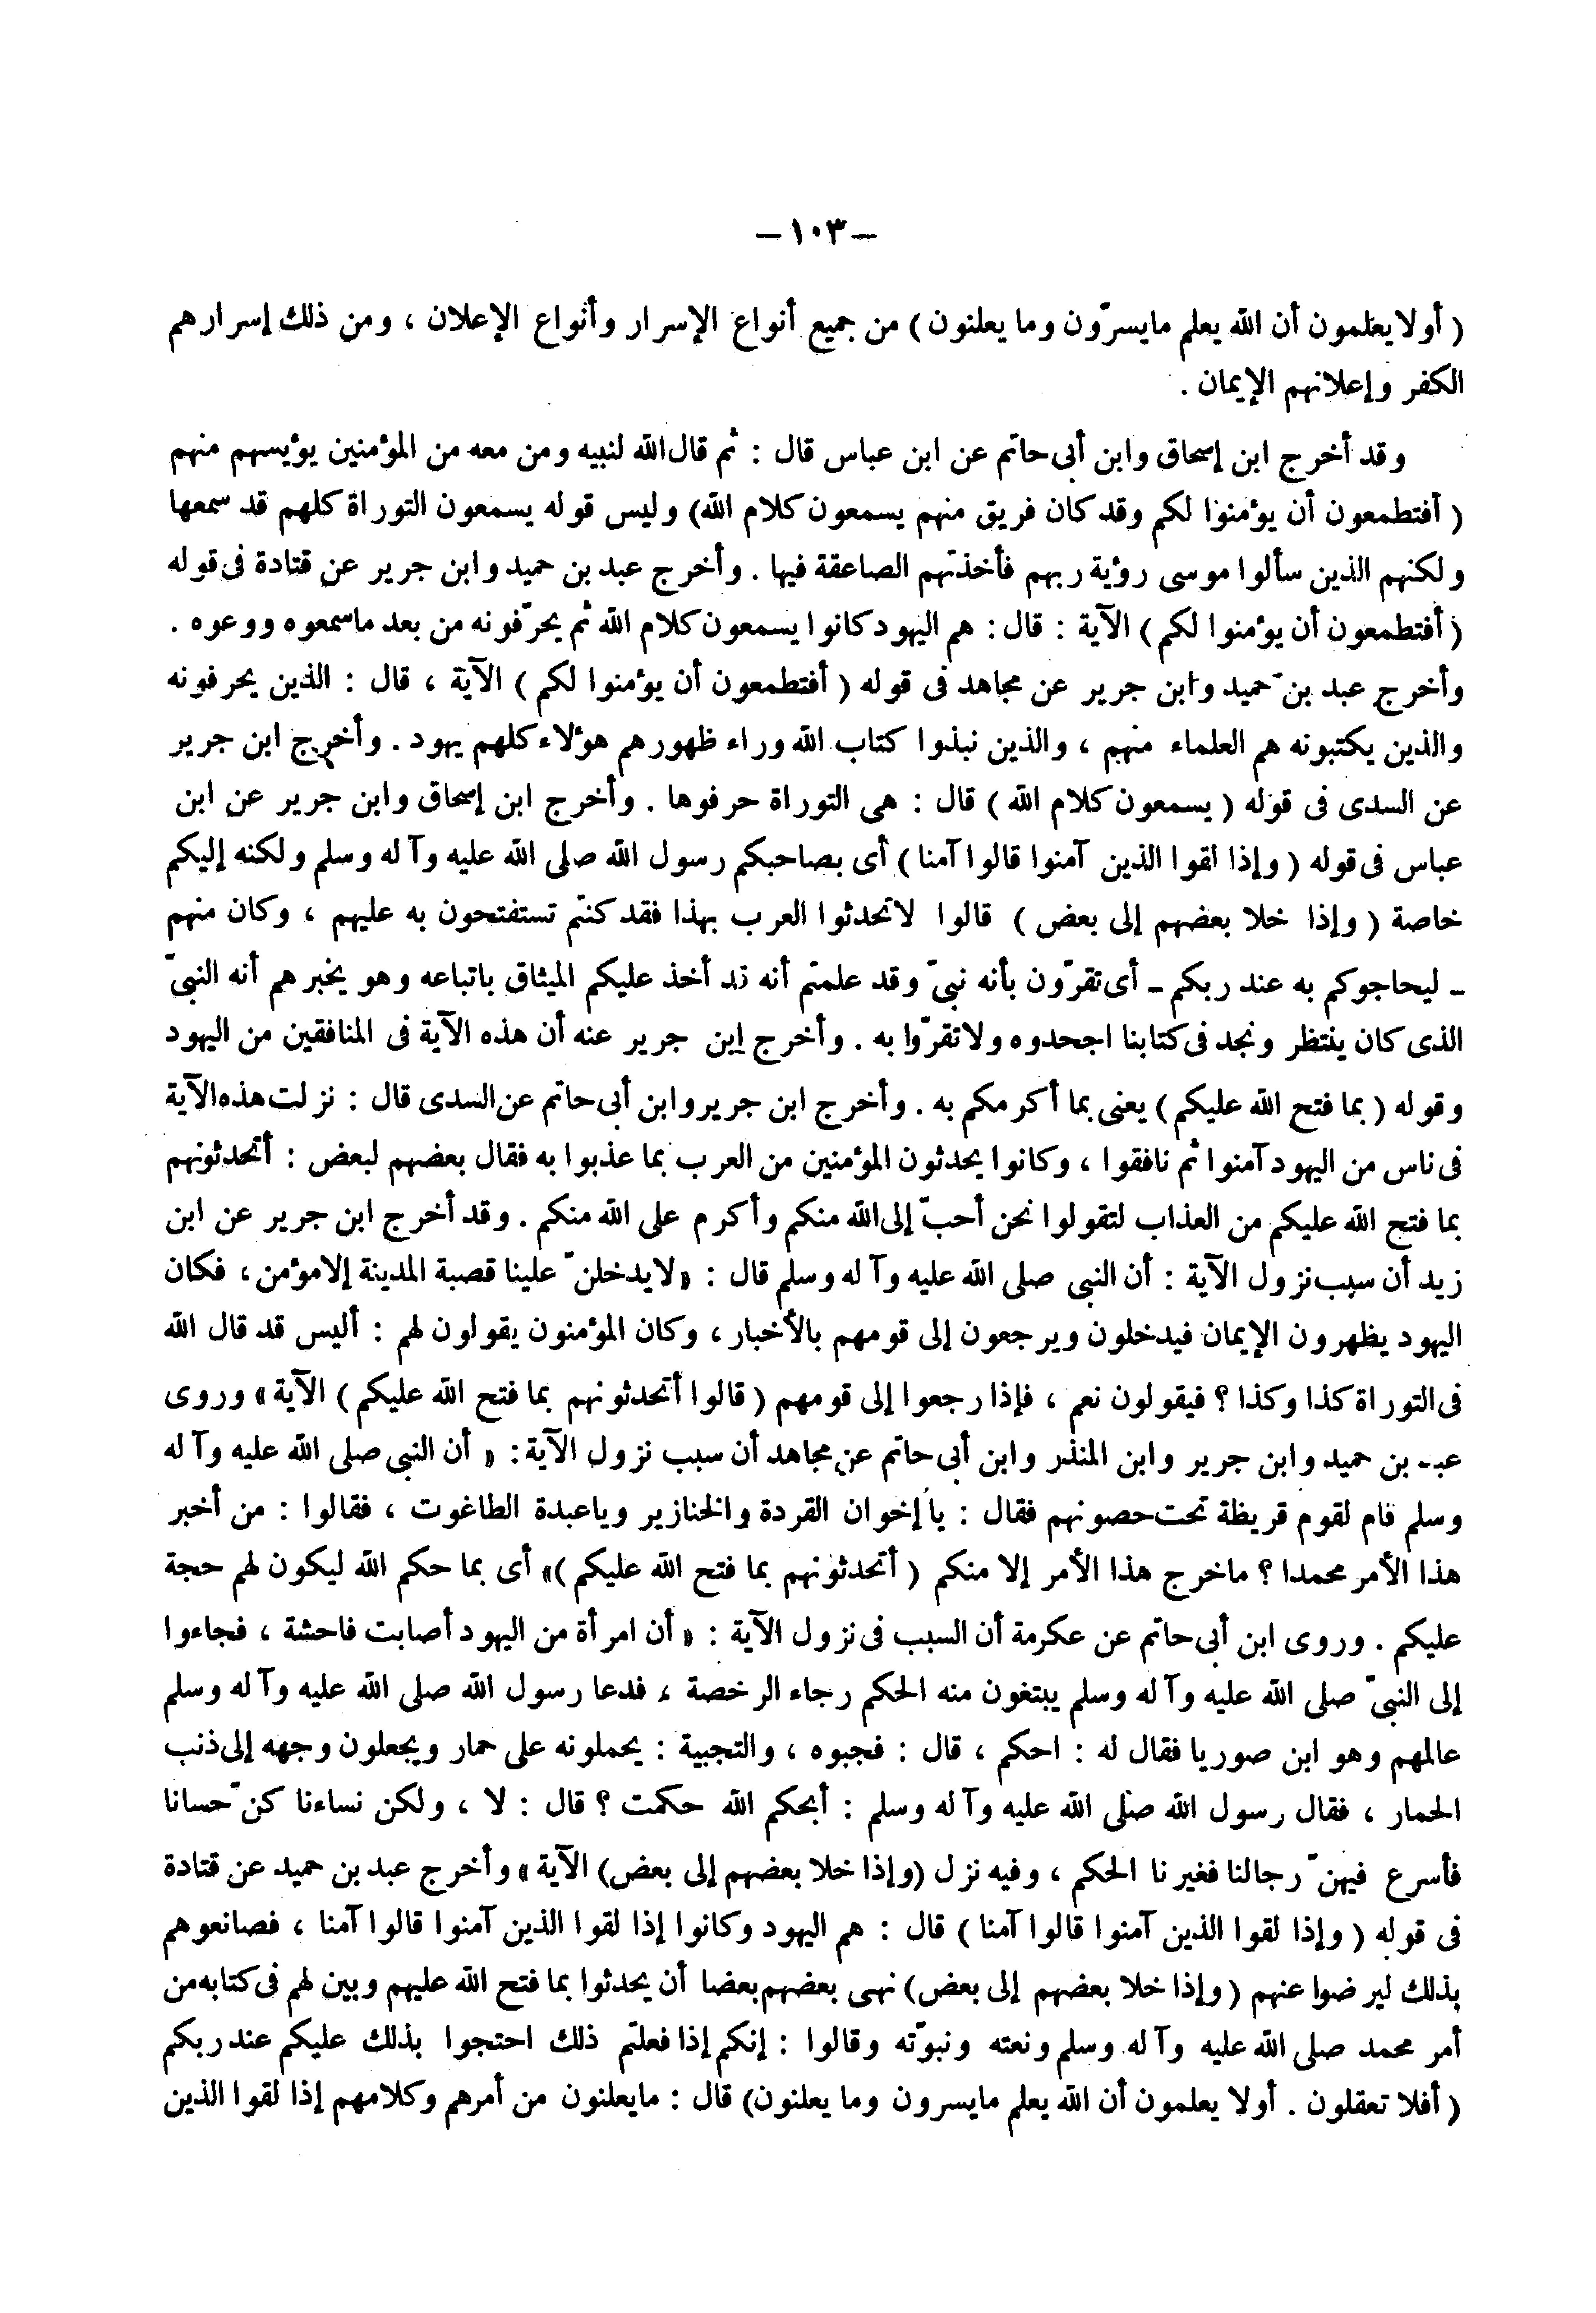 – ١٠٣ –
( أولا يعلمون أن الله يعلم مايسرّون وما يعلنون ) من جميع أنواع الإسرار وأنواع الإعلان ، ومن ذلك إسرارهم
الكفر وإعلانهم الإيمان .
وقد أخرج ابن إسحاق وابن أبى حاتم عن ابن عباس قال : ثم قال الله لنبيه ومن معه من المؤمنين يؤيسهم منهم
( أفتطمعون أن يؤمنوا لكم وقد كان فريق منهم يسمعون كلام الله) وليس قوله يسمعون التوراة كلهم قد سمعها
ولكنهم الذين سألوا موسى رؤية ربهم فأخذتهم الصاعقة فيها . وأخرج عبد بن حميد وابن جرير عن قتادة فى قوله
( أفتطمعون أن يؤمنوا لكم ) الآية : قال : هم اليهود كانوا يسمعون كلام الله ثم يحرّفونه من بعد ماسمعوه ووعوه .
وأخرج عبد بن حميد وابن جرير عن مجاهد فى قوله ( أفتطمعون أن يؤمنوا لكم ) الآية ، قال : الذين يحرفونه
والذين يكتبونه هم العلماء منهم ، والذين نبذوا كتاب الله وراء ظهورهم هؤلاء كلهم يهود . وأخرج ابن جرير
عن السدى فى قوله ( يسمعون كلام الله ) قال : هى التوراة حرفوها . وأخرج ابن إسحاق وابن جرير عن ابن
عباس فى قوله ( وإذا لقوا الذين آمنوا قالوا آمنا ) أى بصاحبكم رسول الله صلى الله عليه وآ له وسلم ولكنه إليكم
خاصة ( وإذا خلا بعضهم إلى بعض ) قالوا لاتحدثوا العرب بهذا فقد كنتم تستفتحون به عليهم ، وكان منهم
ـ ليحاجوكم به عند ربكم ـ أى تقرّون بأنه نبىّ وقد علمتم أنه قد أخذ عليكم الميثاق باتباعه وهو يخبرهم أنه النبىّ
الذى كان ينتظر ونجد فى كتابنا اجحدوه ولاتقرّوا به . وأخرج ابن جرير عنه أن هذه الآية فى المنافقين من اليهود
وقوله ( بما فتح الله عليكم ) يعنى بما أكرمكم به . وأخرج ابن جرير وابن أبى حاتم عن السدى قال : نزلت هذه الآية
فى ناس من اليهود آمنوا ثم نافقوا ، وكانوا يحدثون المؤمنين من العرب بما عذبوا به فقال بعضهم لبعض : أتحدثونهم
بما فتح الله عليكم من العذاب لتقولوا نحن أحبّ إلى الله منكم وأكرم على الله منكم . وقد أخرج ابن جرير عن ابن
زيد أن سبب نزول الآية : أن النبى صلى الله عليه وآ له وسلم قال : « لايدخلنّ علينا قصبة المدينة إلامؤمن ، فكان
اليهود يظهرون الإيمان فيدخلون ويرجعون إلى قومهم بالأخبار ، وكان المؤمنون يقولون لهم : أليس قد قال الله
فى التوراة كذا وكذا ؟ فيقولون نعم ، فإذا رجعوا إلى قومهم ( قالوا أتحدثونهم بما فتح الله عليكم ) الآية » وروى
عبد بن حميد وابن جرير وابن المنذر وابن أبى حاتم عن مجاهد أن سبب نزول الآية : « أن النبى صلى الله عليه وآ له
وسلم قام لقوم قريظة تحت حصونهم فقال : يا إخوان القردة والخنازير وياعبدة الطاغوت ، فقالوا : من أخبر
هذا الأمر محمدا ؟ ماخرج هذا الأمر إلا منكم ( أتحدثونهم بما فتح الله عليكم )» أى بما حكم الله ليكون لهم حجة
عليكم . وروى ابن أبى حاتم عن عكرمة أن السبب فى نزول الآية : « أن امرأة من اليهود أصابت فاحشة ، فجاءوا
إلى النبىّ صلى الله عليه وآ له وسلم يبتغون منه الحكم رجاء الرخصة ، فدعا رسول الله صلى الله عليه وآ له وسلم
عالمهم وهو ابن صوريا فقال له : احكم ، قال : فجبوه ، والتجبية : يحملونه على حمار ويجعلون وجهه إلى ذنب
الحمار ، فقال رسول الله صلى الله عليه وآ له وسلم : أبحكم الله حكمت ؟ قال : لا ، ولكن نساءنا كنّ حسانا
فأسرع فيهنّ رجالنا فغيرنا الحكم ، وفيه نزل (وإذا خلا بعضهم إلى بعض) الآية » وأخرج عبد بن حميد عن قتادة
فى قوله ( وإذا لقوا الذين آمنوا قالوا آمنا ) قال : هم اليهود وكانوا إذا لقوا الذين آمنوا قالوا آمنا ، فصانعوهم
بذلك ليرضوا عنهم ( وإذا خلا بعضهم إلى بعض) نهى بعضهم بعضا أن يحدثوا بما فتح الله عليهم وبين لهم فى كتابه من
أمر محمد صلى الله عليه وآ له وسلم ونعته ونبوّته وقالوا : إنكم إذا فعلتم ذلك احتجوا بذلك عليكم عند ربكم
( أفلا تعقلون . أولا يعلمون أن الله يعلم مايسرون وما يعلنون) قال : مايعلنون من أمرهم وكلامهم إذا لقوا الذين